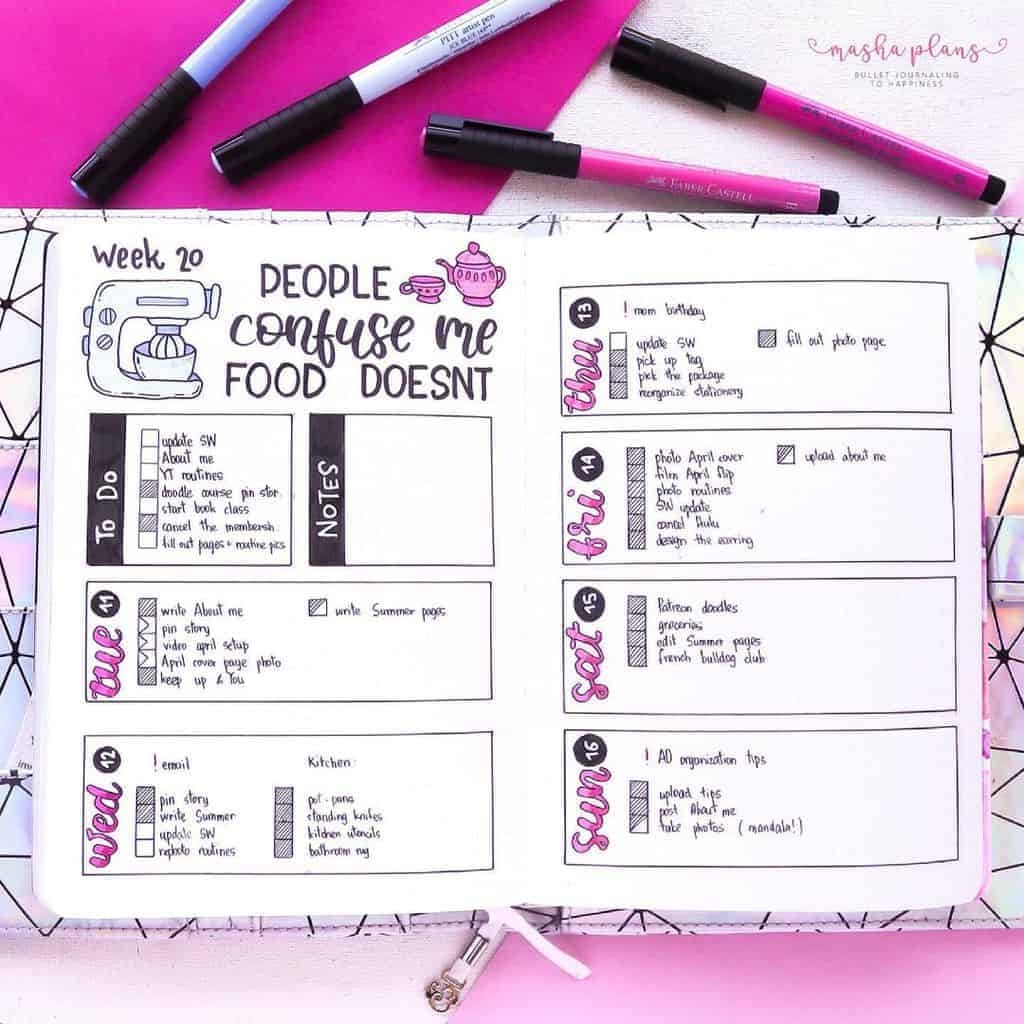 PITT artist pen
masha plans
BULLET JOURNALING
TO HAPPINESS
FABER CASTELL
Week 20
PEOPLE
confuse me
FOOD DOESNT
To Do
update SW
About me
YT routines
doodle course pin stor.
start book class
cancel the membersh.
fill out pages + routine pics
NOTES
tue 11
write About me
pin story
video april setup
April cover page photo
keep up & You
write Summer pages
wed 12
! email
pin story
write Summer
update SW
rephoto routines
Kitchen:
pot-pans
standing knifes
kitchen utencils
bathroom rug
thu 13
! mom birthday
update SW
pick up tag
pick the package
reorganize stationery
fill out photo page
fri 14
photo April cover
film April flip
photo routines
SW update
cancel Hulu
design the earring
upload about me
sat 15
Patreon doodles
groceries
edit Summer pages
french bulldog club
sun 16
! AD organization tips
upload tips
post About me
take photos (mandala!)